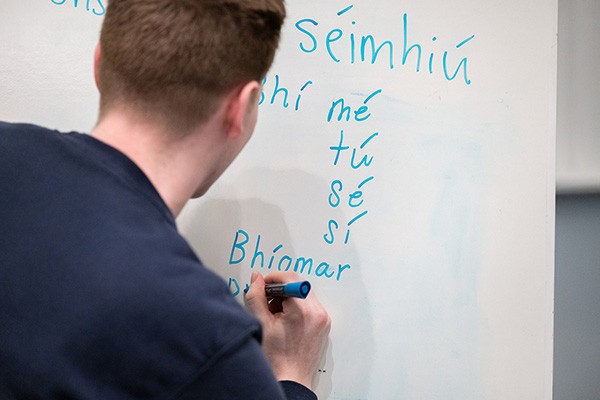 séimhiú
bhí mé
tú
sé
sí
Bhíomar